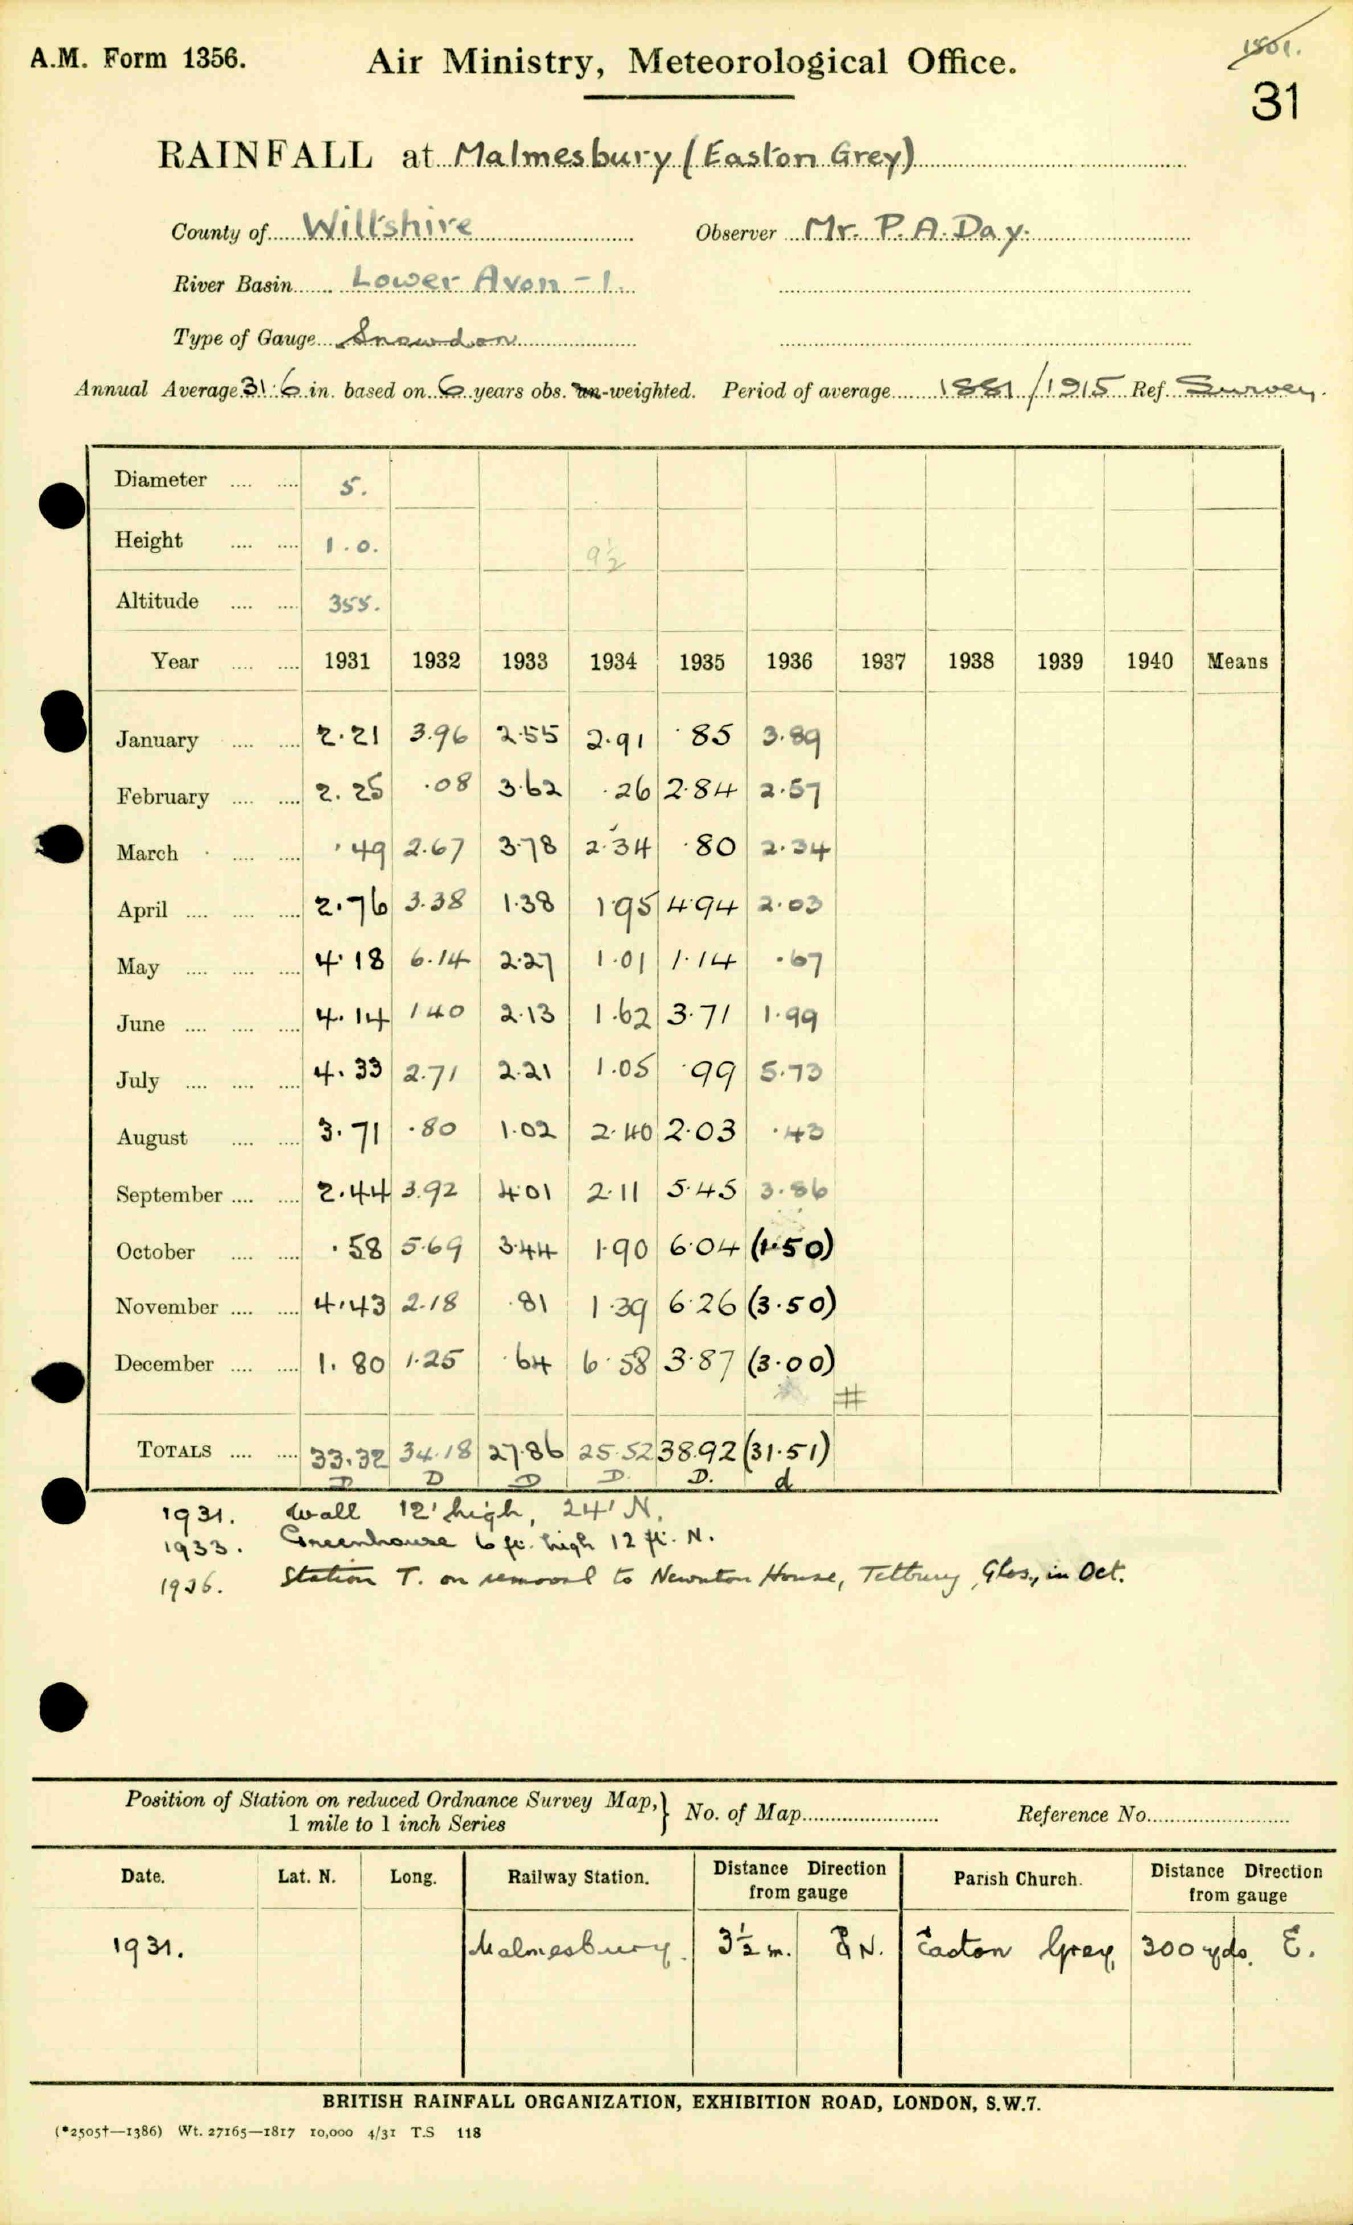 A.M. Form 1356.
Air Ministry, Meteorological Office.
31
RAINFALL at Malmesbury (Easton Grey)
County of Wiltshire Observer Mr. P. A. Day.
River Basin Lower Avon - 1.
Type of Gauge Snowdon
Annual Average 31.6 in. based on 6 years obs. un-weighted. Period of average 1881/1915 Ref. Survey.
Diameter 5.
Height 1.0. 9½
Altitude 355.
Year 1931 1932 1933 1934 1935 1936 1937 1938 1939 1940 Means
January 2.21 3.96 2.55 2.91 .85 3.89
February 2.25 .08 3.62 .26 2.84 2.57
March .49 2.67 3.78 2.34 .80 2.34
April 2.76 3.38 1.38 1.95 4.94 2.03
May 4.18 6.14 2.27 1.01 1.14 .67
June 4.14 1.40 2.13 1.62 3.71 1.99
July 4.33 2.71 2.21 1.05 .99 5.73
August 3.71 .80 1.02 2.40 2.03 .43
September 2.44 3.92 4.01 2.11 5.45 3.86
October .58 5.69 3.44 1.90 6.04 (1.50)
November 4.43 2.18 .81 1.39 6.26 (3.50)
December 1.80 1.25 .64 6.58 3.87 (3.00)
#
TOTALS 33.32 34.18 27.86 25.52 38.92 (31.51)
D D D D. D. d
1931. Wall 12' high, 24' N.
1933. Greenhouse 6 ft. high 12 ft. N.
1936. Station T. on removal to Newnton House, Tetbury, Glos., in Oct.
Position of Station on reduced Ordnance Survey Map, 1 mile to 1 inch Series } No. of Map Reference No.
Date. Lat. N. Long. Railway Station. Distance Direction from gauge Parish Church. Distance Direction from gauge
1931. Malmesbury. 3½ m. N. Easton Grey, 300 yds. E.
BRITISH RAINFALL ORGANIZATION, EXHIBITION ROAD, LONDON, S.W.7.
(*2505†—1386) Wt. 27165—1817 10,000 4/31 T.S 118